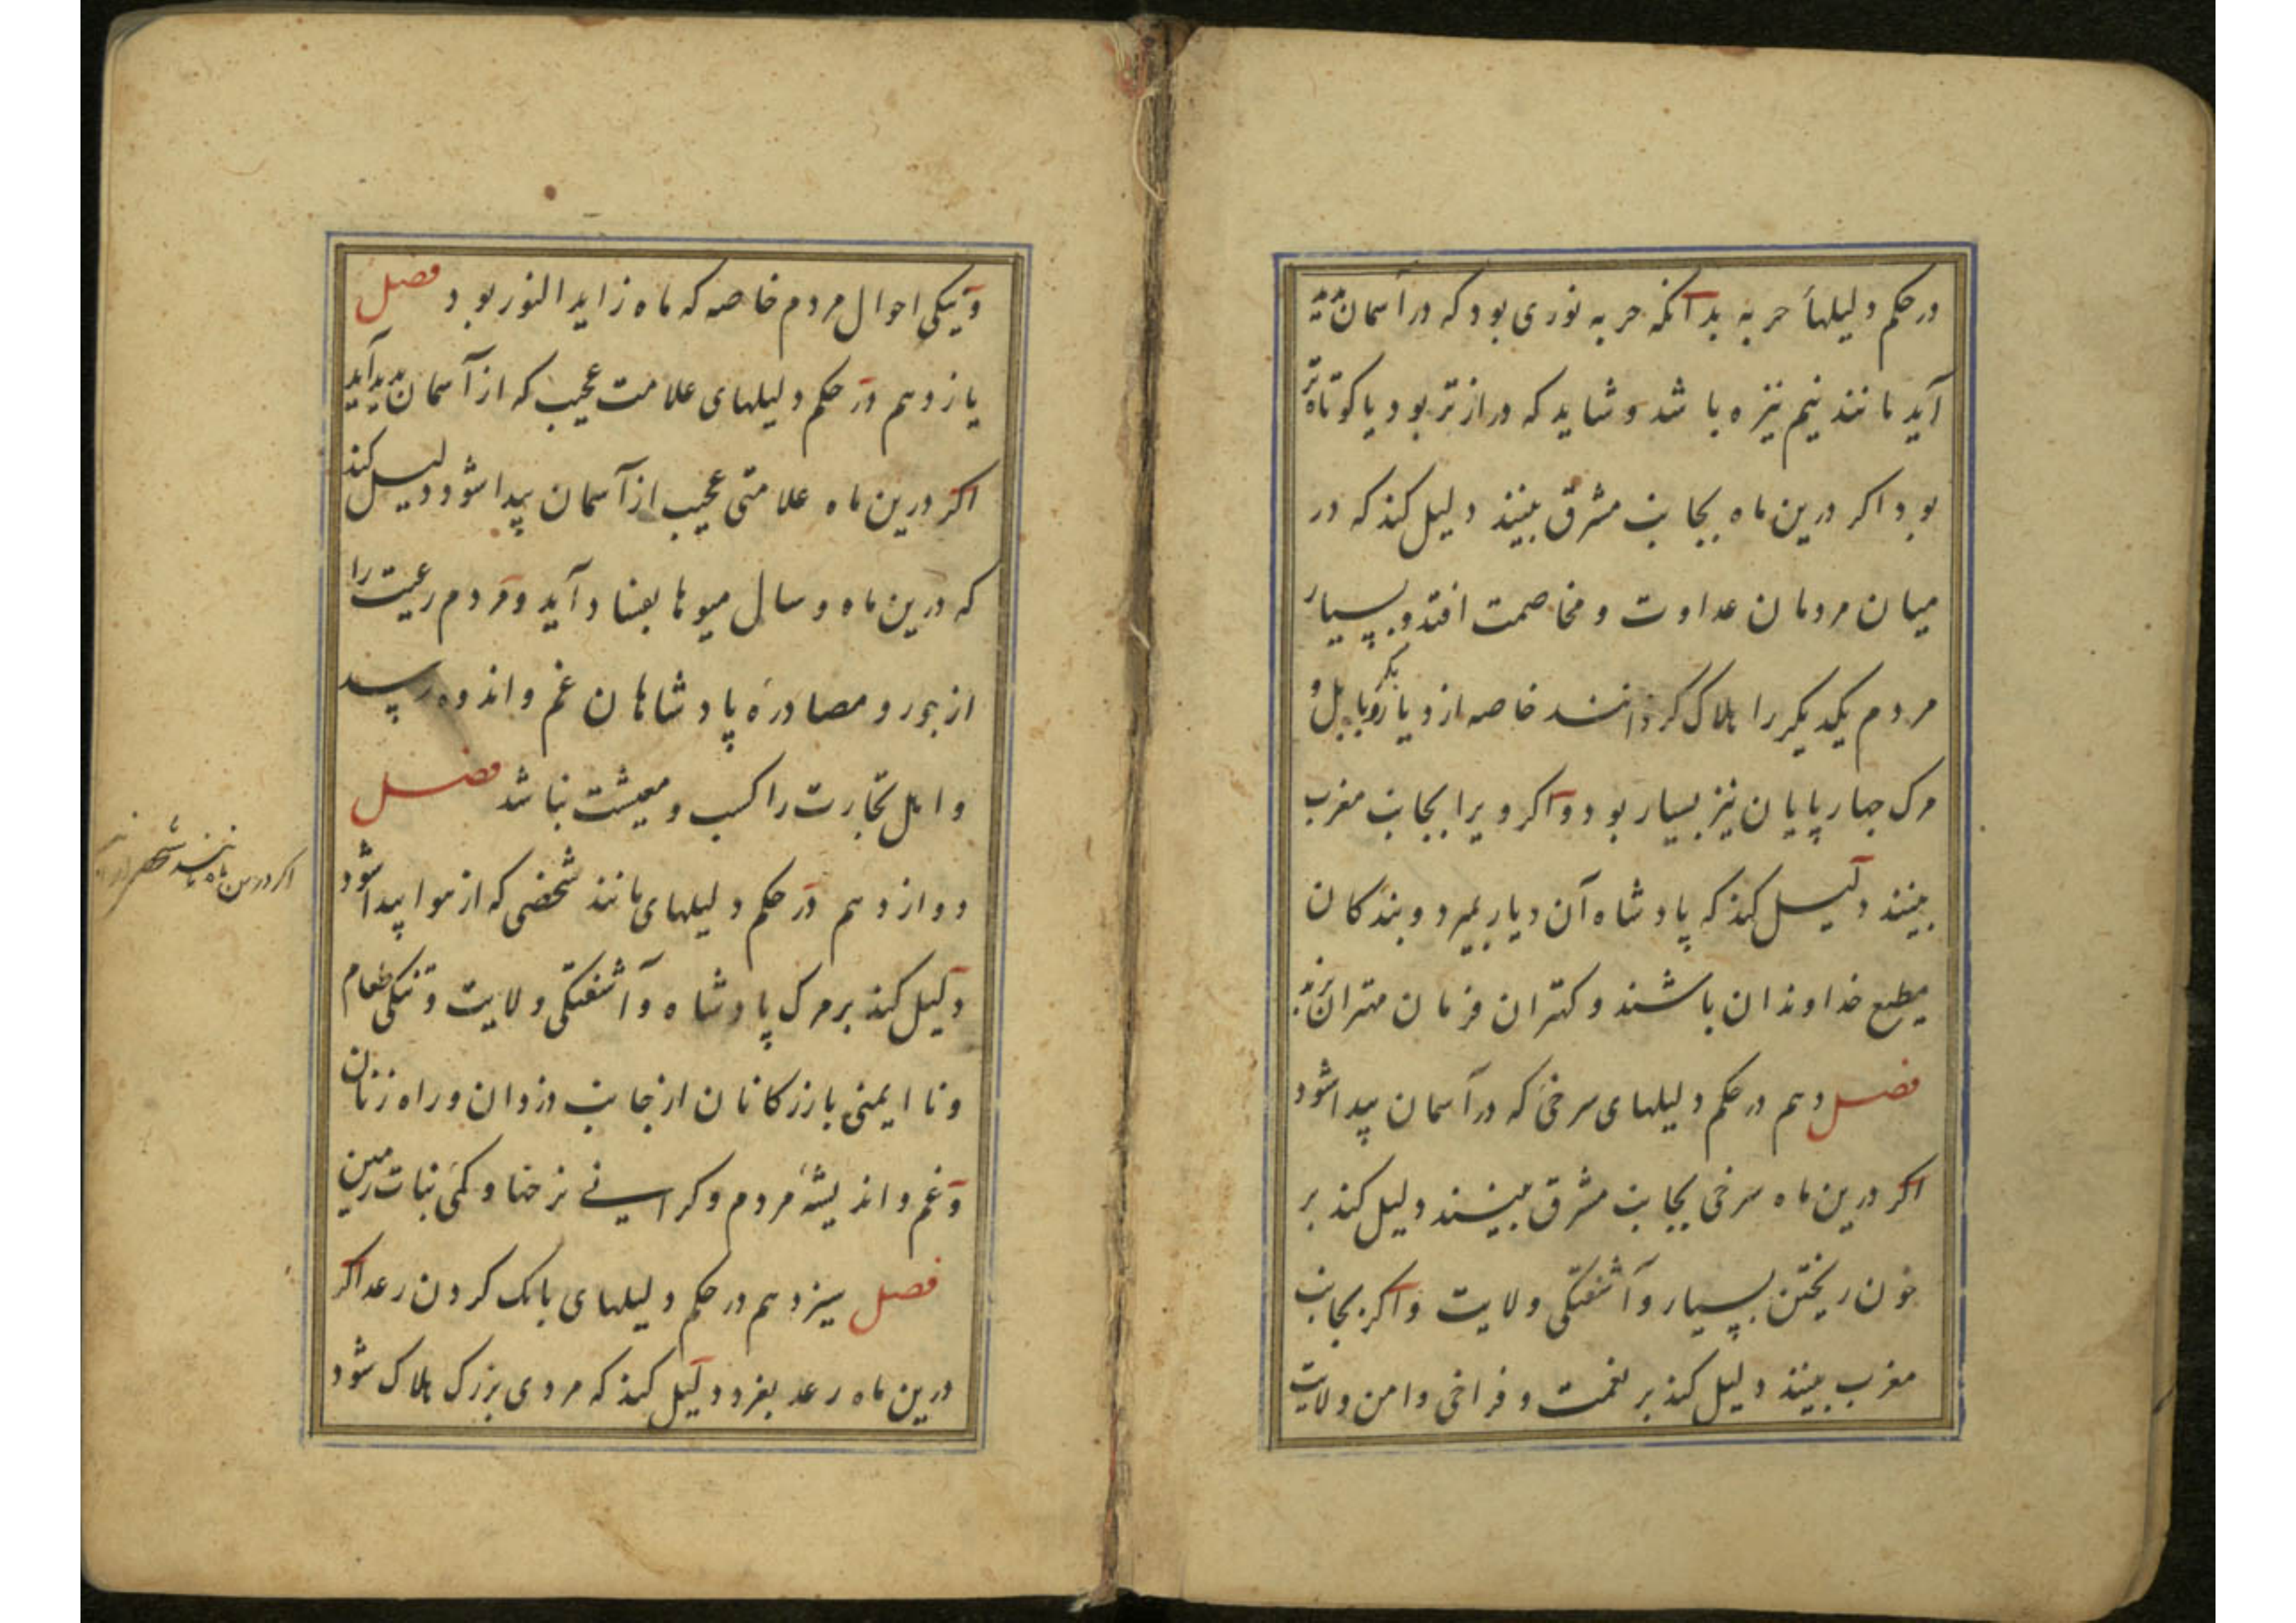 در حکم دلیلهاء حربه بدآنکه حربه نوری بود که در آسمان پدید
آید مانند نیم نیزه باشد و شاید که درازتر بود یا کوتاه‌تر
بود اکر درین ماه بجانب مشرق بینند دلیل کند که در
میان مردمان عداوت و مخاصمت افتد و بسیار
مردم یکدیکر را هلاک کردانند خاصه از دیار بابل و
مرک چهارپایان نیز بسیار بود و اکر ویرا بجانب مغرب
بینند دلیل کند که پادشاه آن دیار بمیرد و بندکان
مطیع خداوندان باشند و کهتران فرمان مهتران برند
فصل دهم در حکم دلیلهای سرخیٔ که در آسمان پیدا شود
اکر درین ماه سرخی بجانب مشرق بینند دلیل کند بر
خون ریختن بسیار و آشفتکی ولایت و اکر بجانب
مغرب بینند دلیل کند بر نعمت و فراخی و امن ولایت
و نیکی احوال مردم خاصه که ماه زاید النور بود فصل
یازدهم در حکم دلیلهای علامت عجیب که از آسمان پدید آید
اکر درین ماه علامتی عجیب از آسمان پیدا شود دلیل کند
که درین ماه و سال میوها بفساد آید و مردم رعیت را
از جور و مصادرهٔ پادشاهان غم و اندوه رسد
و اهل تجارت را کسب و معیشت نباشد فصل
دوازدهم در حکم دلیلهای مانند شخصی که از هوا پیدا شود
دلیل کند بر مرک پادشاه و آشفتکی ولایت و تنکی طعام
و نا ایمنی بازرکانان از جانب دزدان و راه زنان
و غم و اندیشهٔ مردم و کرانی نرخها و کمیٔ نبات زمین
فصل سیزدهم در حکم دلیلهای بانک کردن رعد اکر
درین ماه رعد بغرد دلیل کند که مردی بزرک هلاک شود
اکر درین ماه